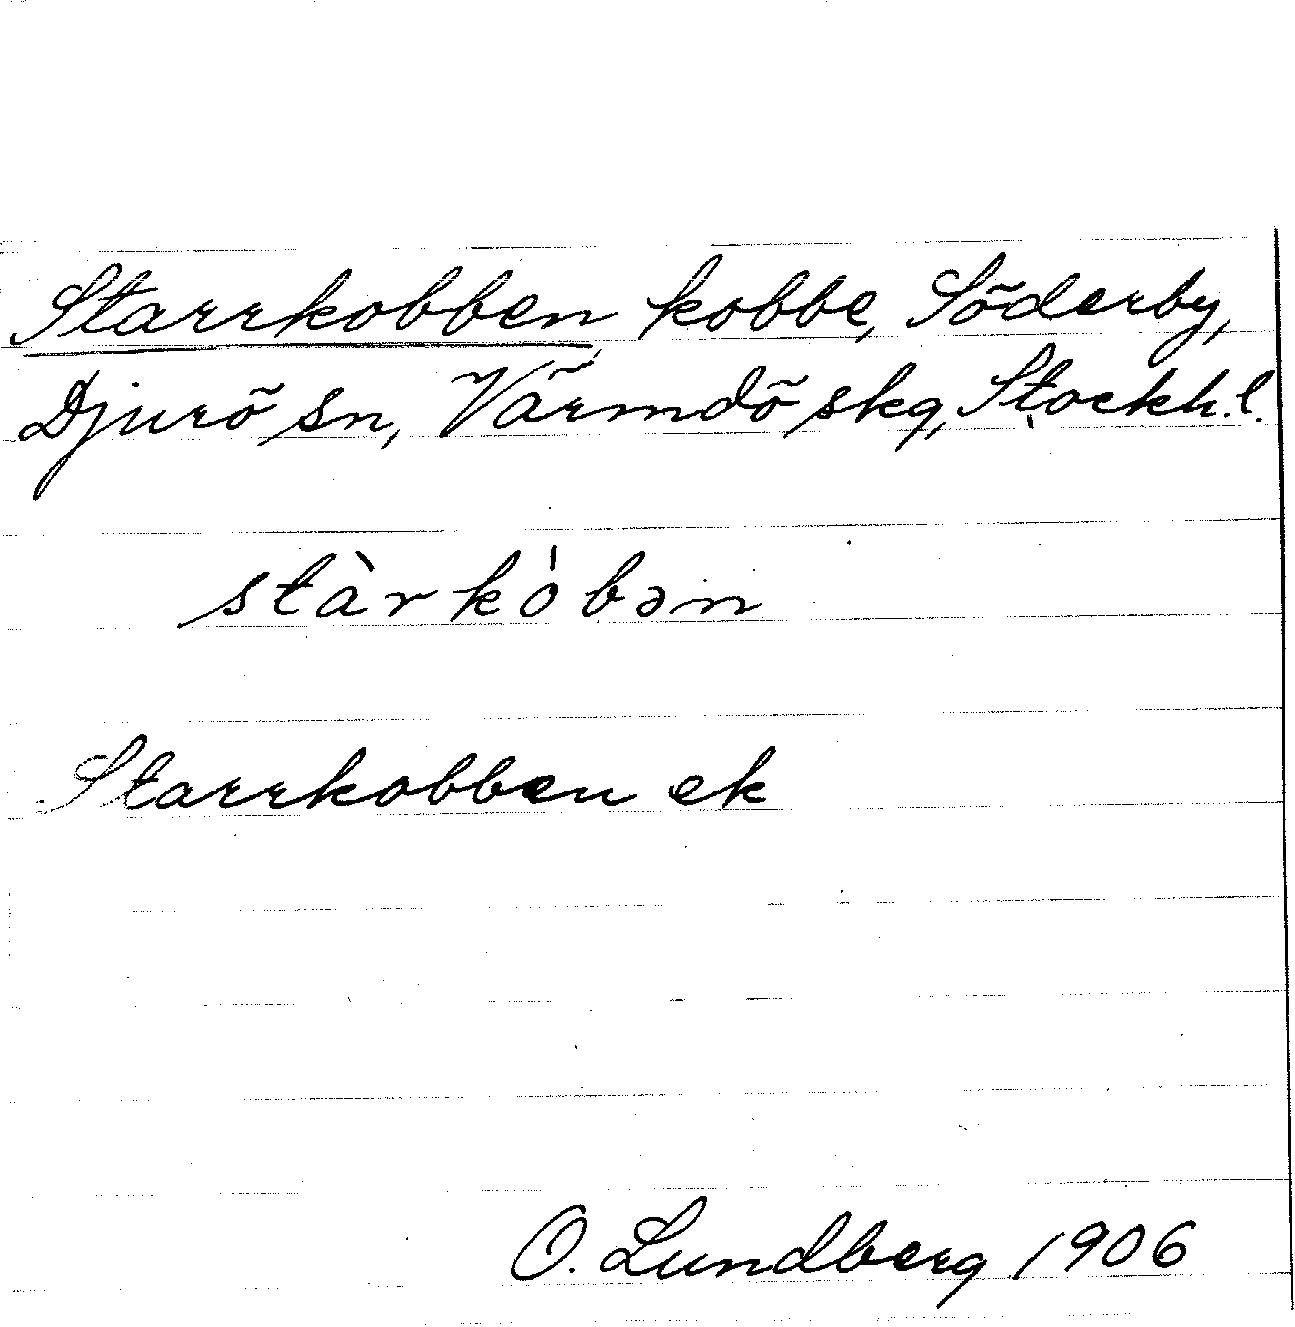 Starrkobben, kobbe, Söderby,
Djurö sn, Värmdö skg, Stockh. l.
stàrkóbən
Starrkobben ek
O. Lundberg 1906